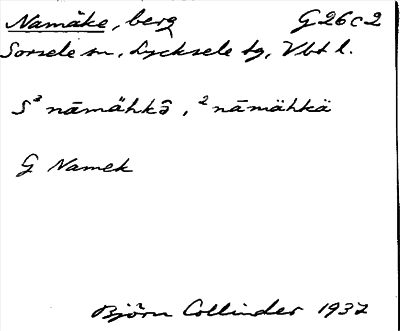 Namäke, berg G26c2
Sorsele sn, Lycksele tg, Vbt l.
S³ nāmä̆hkə̑, ² nāmähkä
G Namek
Björn Collinder 1937